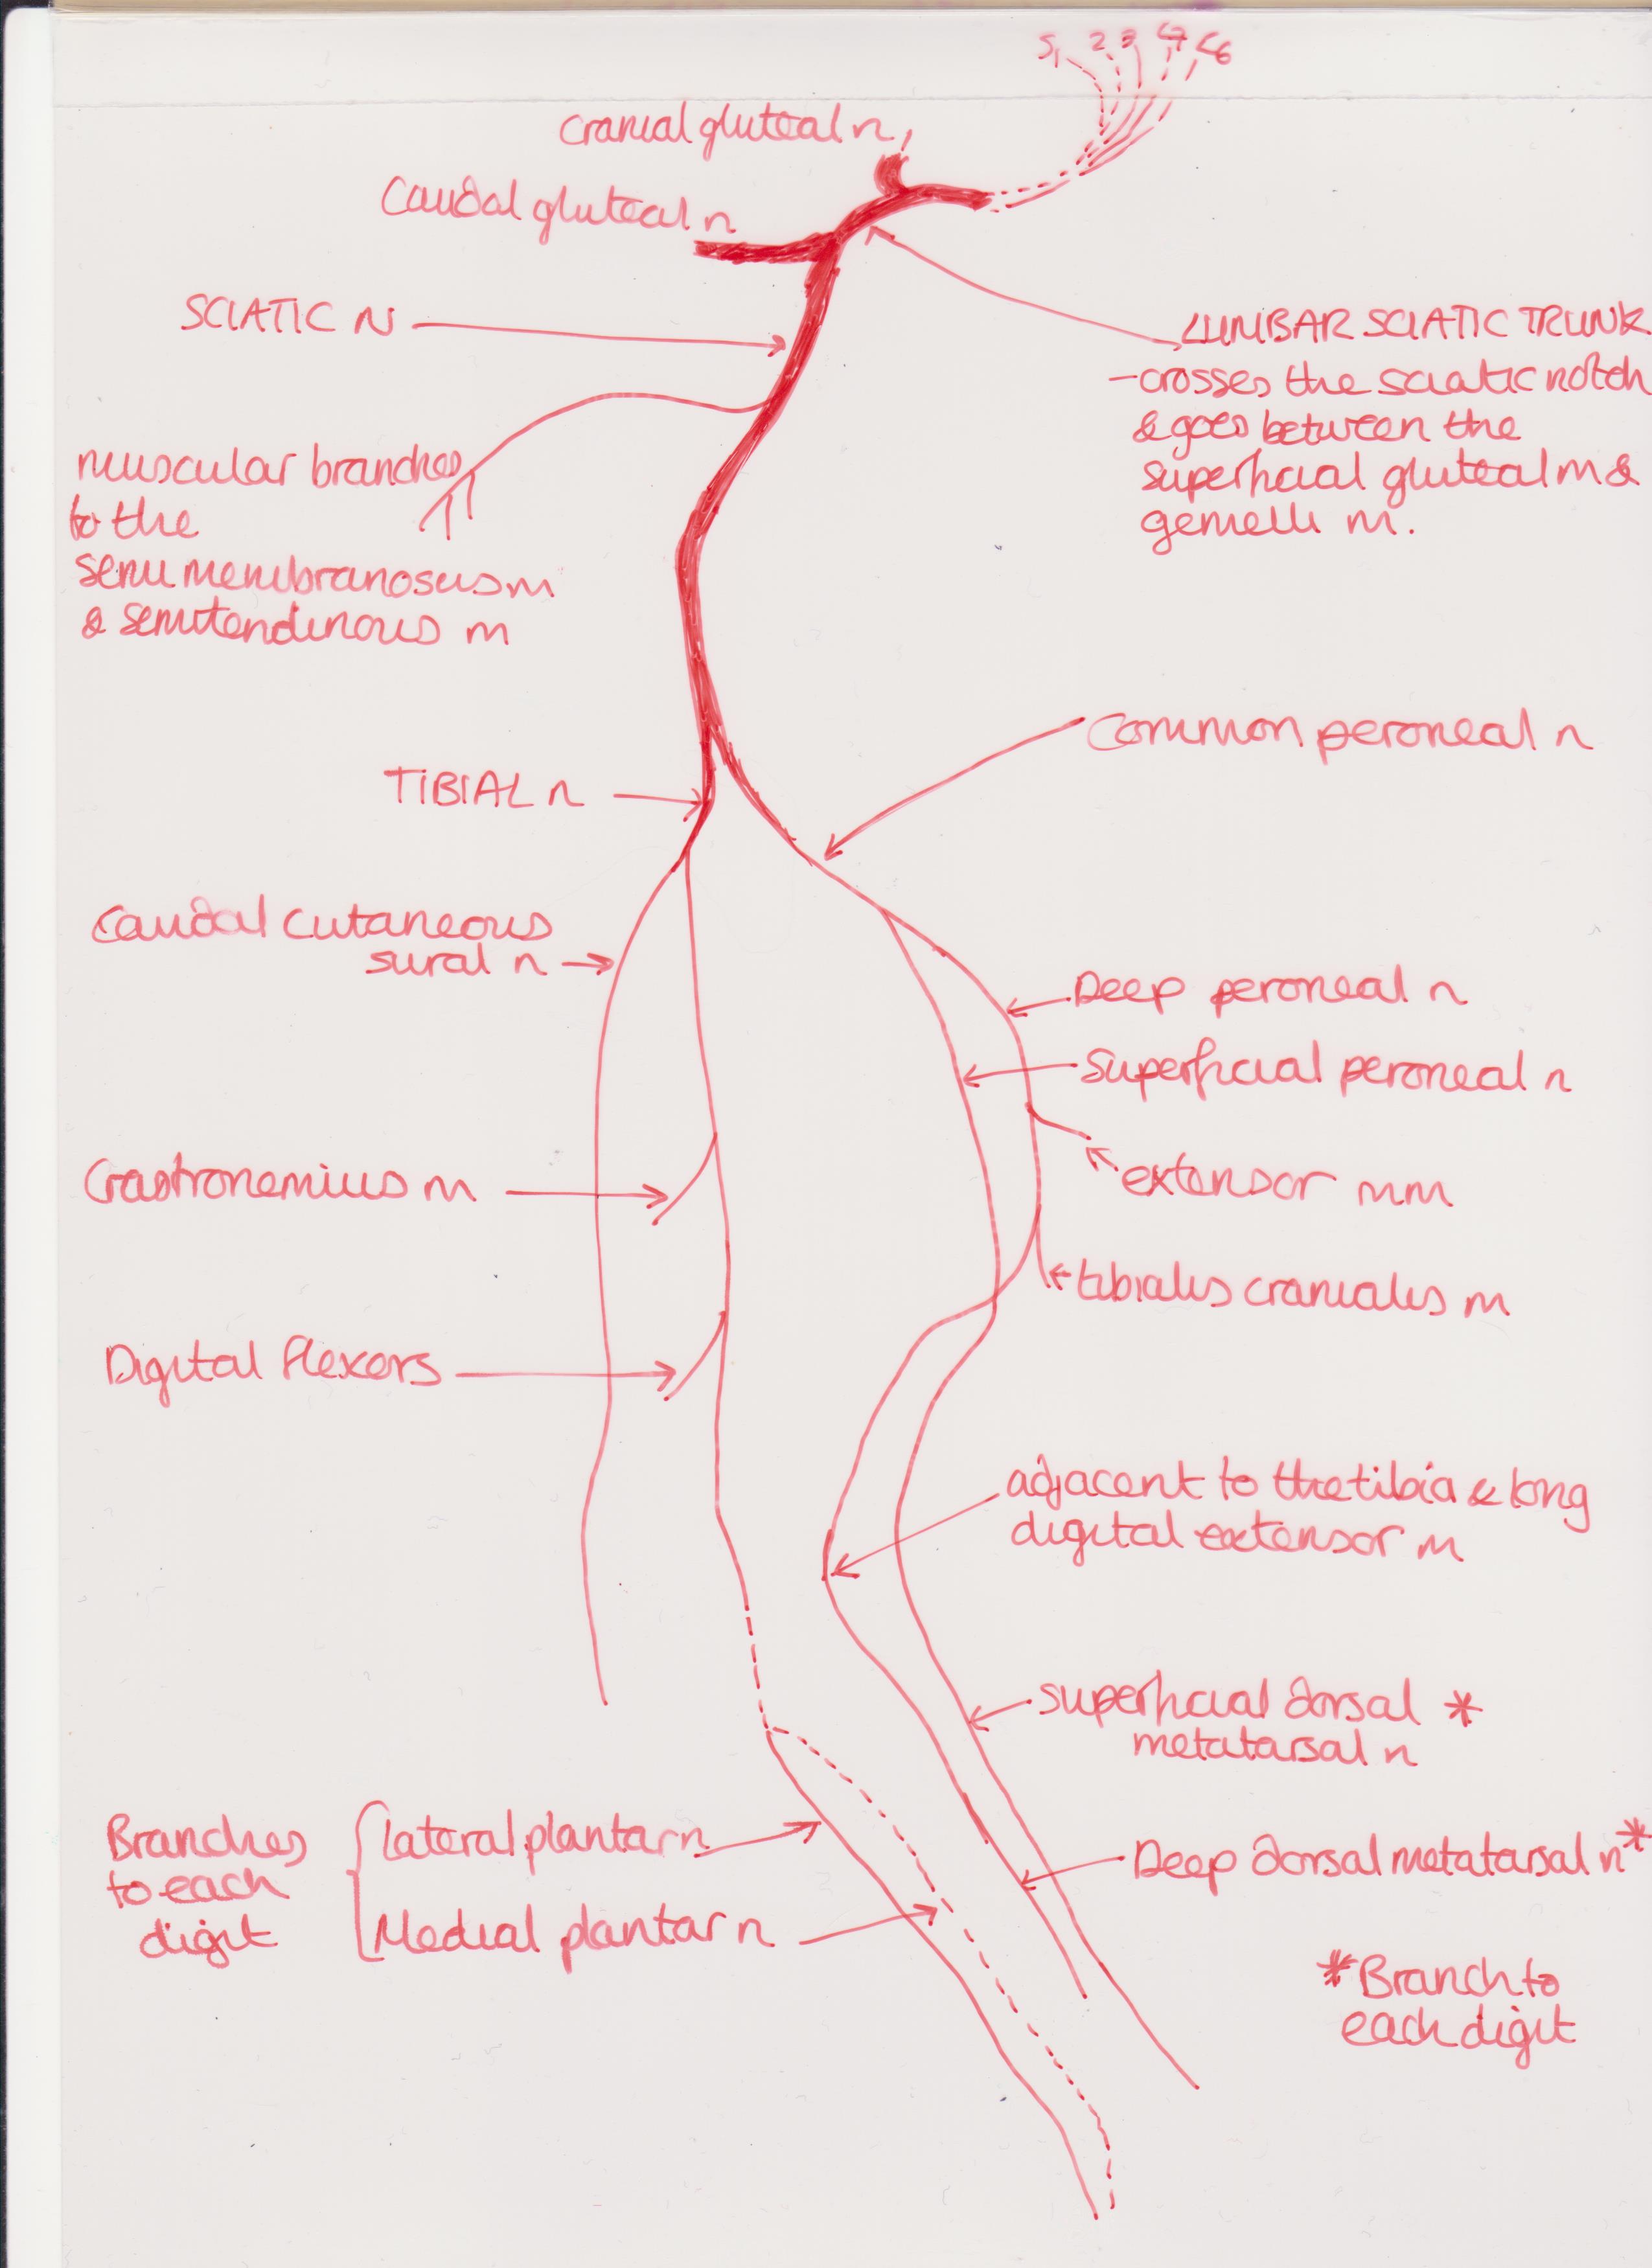 S1 2 3 L7 L6
Cranial gluteal n,
Caudal gluteal n
SCIATIC N
LUMBAR SCIATIC TRUNK
- crosses the sciatic notch
& goes between the
superficial gluteal m &
gemelli m.
muscular branches
to the
semi membranosus m
& semitendinous m
Common peroneal n
TIBIAL n
Caudal cutaneous
sural n
Deep peroneal n
Superficial peroneal n
extensor mm
Gastronemius m
tibialis cranialis m
Digital flexors
adjacent to the tibia & long
digital extensor m
superficial dorsal *
metatarsal n
Branches
to each
digit
lateral plantar n
Medial plantar n
Deep dorsal metatarsal n*
* Branch to
each digit